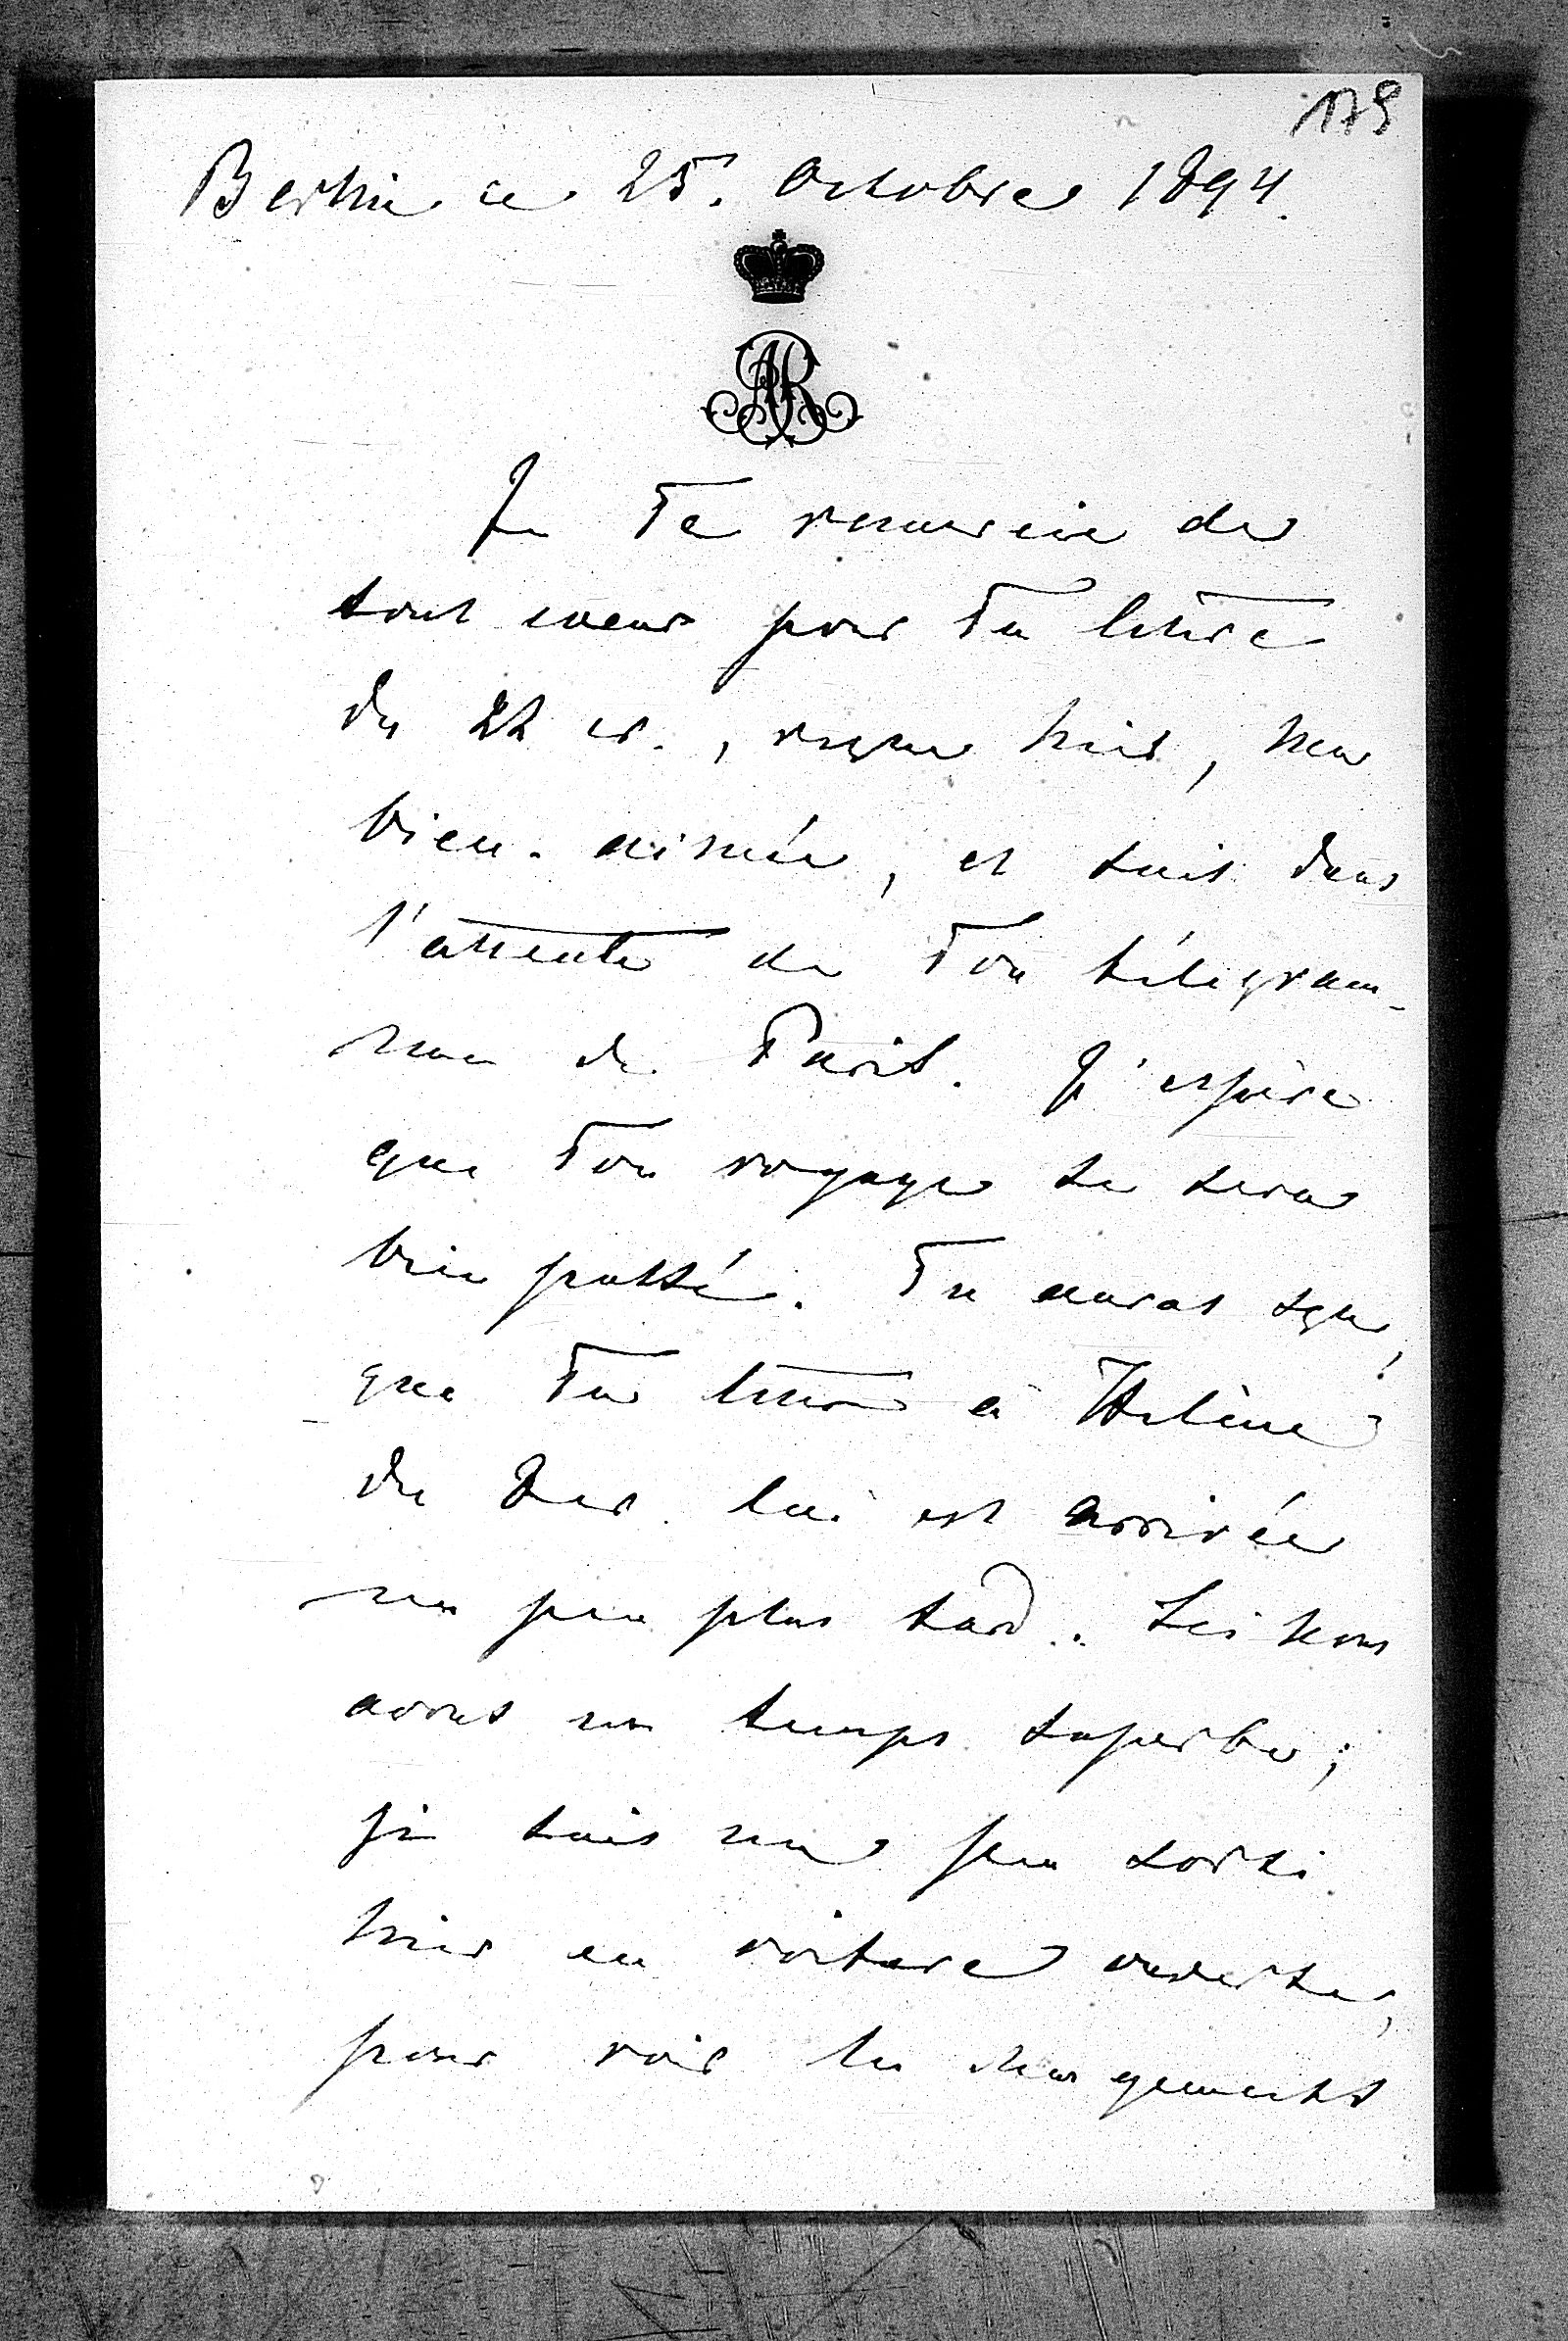 179
Berlin ce 25. Octobre 1894.
AR
Je Te remercie de
tout coeur pour Ta lettre
du 22 cr., reçue hier, ma
bien-aimée, et suis dans
l'attente de Ton télégram-
me de Paris. J'espère
que Ton voyage se sera
bien passé. Tu auras sçu,
que Ta lettre à Hélène
du lui est arrivée
un peu plus tard. Ici nous
avons un temps superbe;
je suis un peu sorti
hier en voiture ouverte,
pour voir les changements